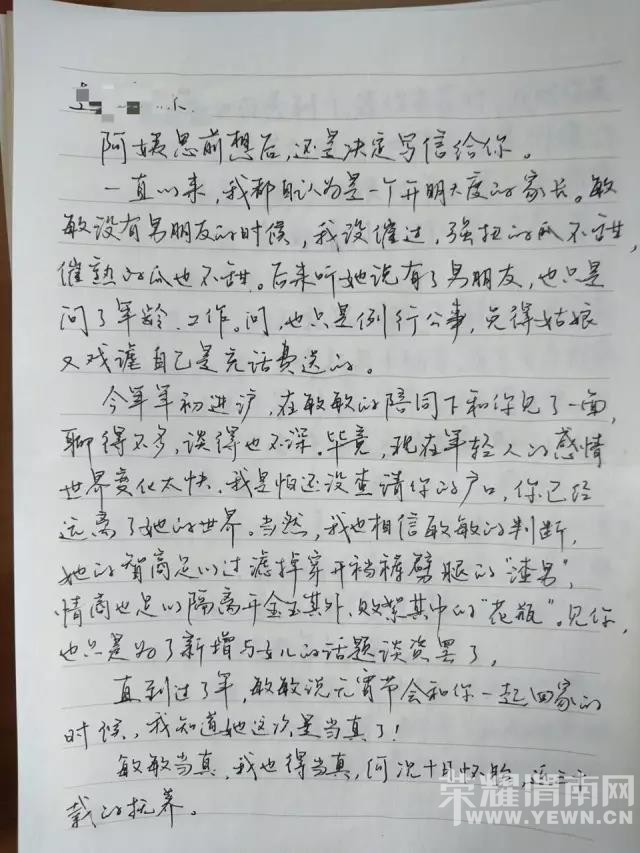 阿姨思前想后,还是决定写信给你。
一直以来,我都自认为是一个开明大度的家长。敏
敏没有男朋友的时候,我没催过,强扭的瓜不甜,
催熟的瓜也不甜。后来听她说有了男朋友,也只是
问了年龄、工作。问,也只是例行公事,免得姑娘
又戏谑自己是充话费送的。
今年年初进沪,在敏敏的陪同下和你见了一面,
聊得不多,谈得也不深。毕竟,现在年轻人的感情
世界变化太快,我是怕还没查清你的户口,你已经
远离了她的世界。当然,我也相信敏敏的判断,
她的智商足以过滤掉穿开裆裤劈腿的“渣男”,
情商也足以隔离开金玉其外、败絮其中的“花瓶”。见你,
也只是为了新增与女儿的话题谈资罢了。
直到过了年,敏敏说元宵节会和你一起回家的
时候,我知道她这次是当真了!
敏敏当真,我也得当真,何况十月怀胎,
载的抚养。
荣耀渭南网
WWW.YEWN.CN